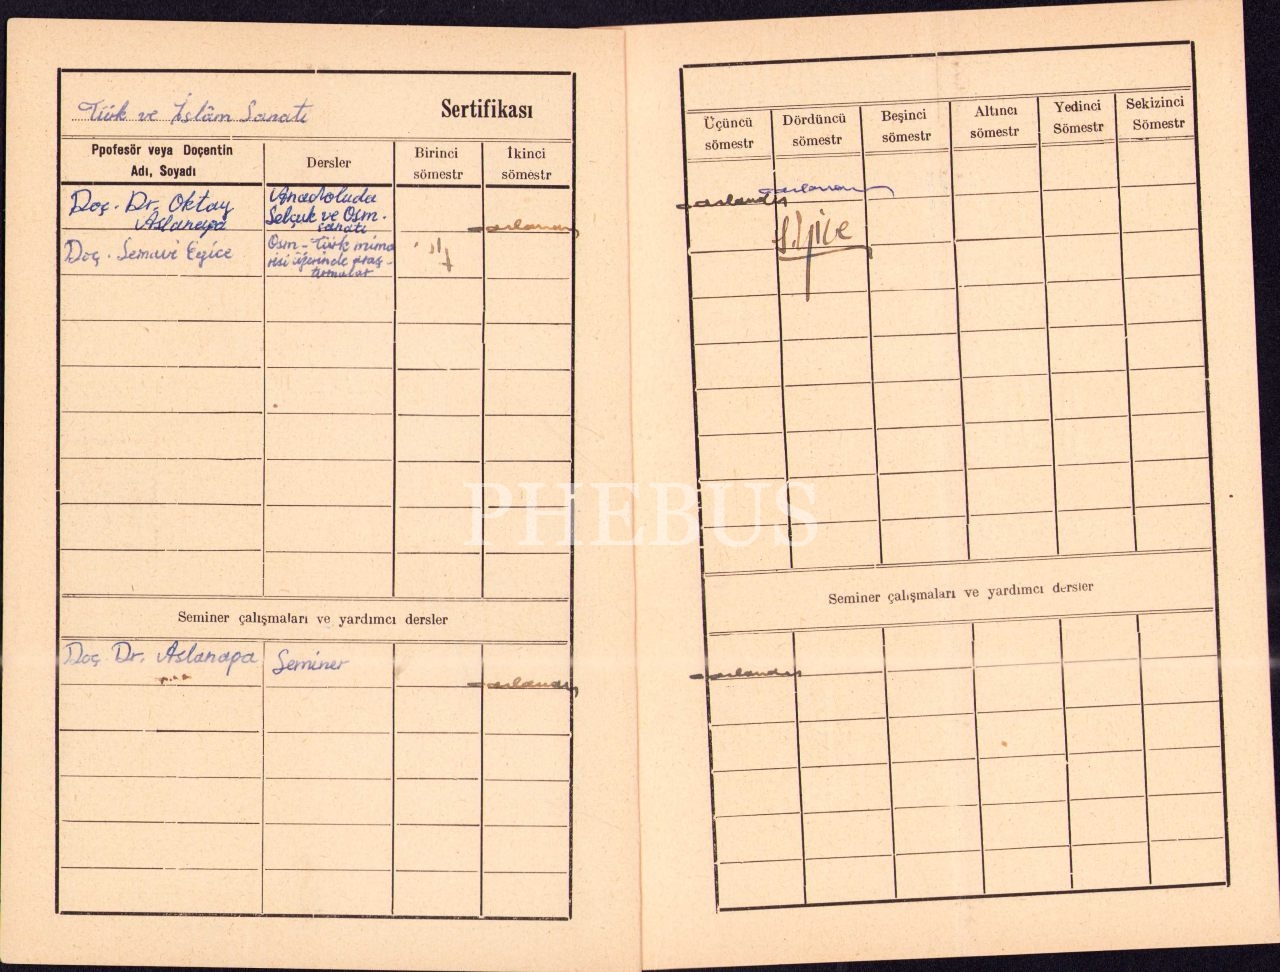 Türk ve İslâm Sanatı Sertifikası
Ppofesör veya Doçentin
Adı, Soyadı
Dersler
Birinci
sömestr
İkinci
sömestr
Doç. Dr. Oktay
Aslanapa
Anadoluda
Selçuk ve Osm.
sanatı
Doç. Semavi Eyice
Osm - Türk mima
risi üzerinde araş-
tırmalar
Seminer çalışmaları ve yardımcı dersler
Doç Dr. Aslanapa
Seminer
Üçüncü
sömestr
Dördüncü
sömestr
Beşinci
sömestr
Altıncı
sömestr
Yedinci
Sömestr
Sekizinci
Sömestr
S.Eyice
Seminer çalışmaları ve yardımcı dersler
PHEBUS